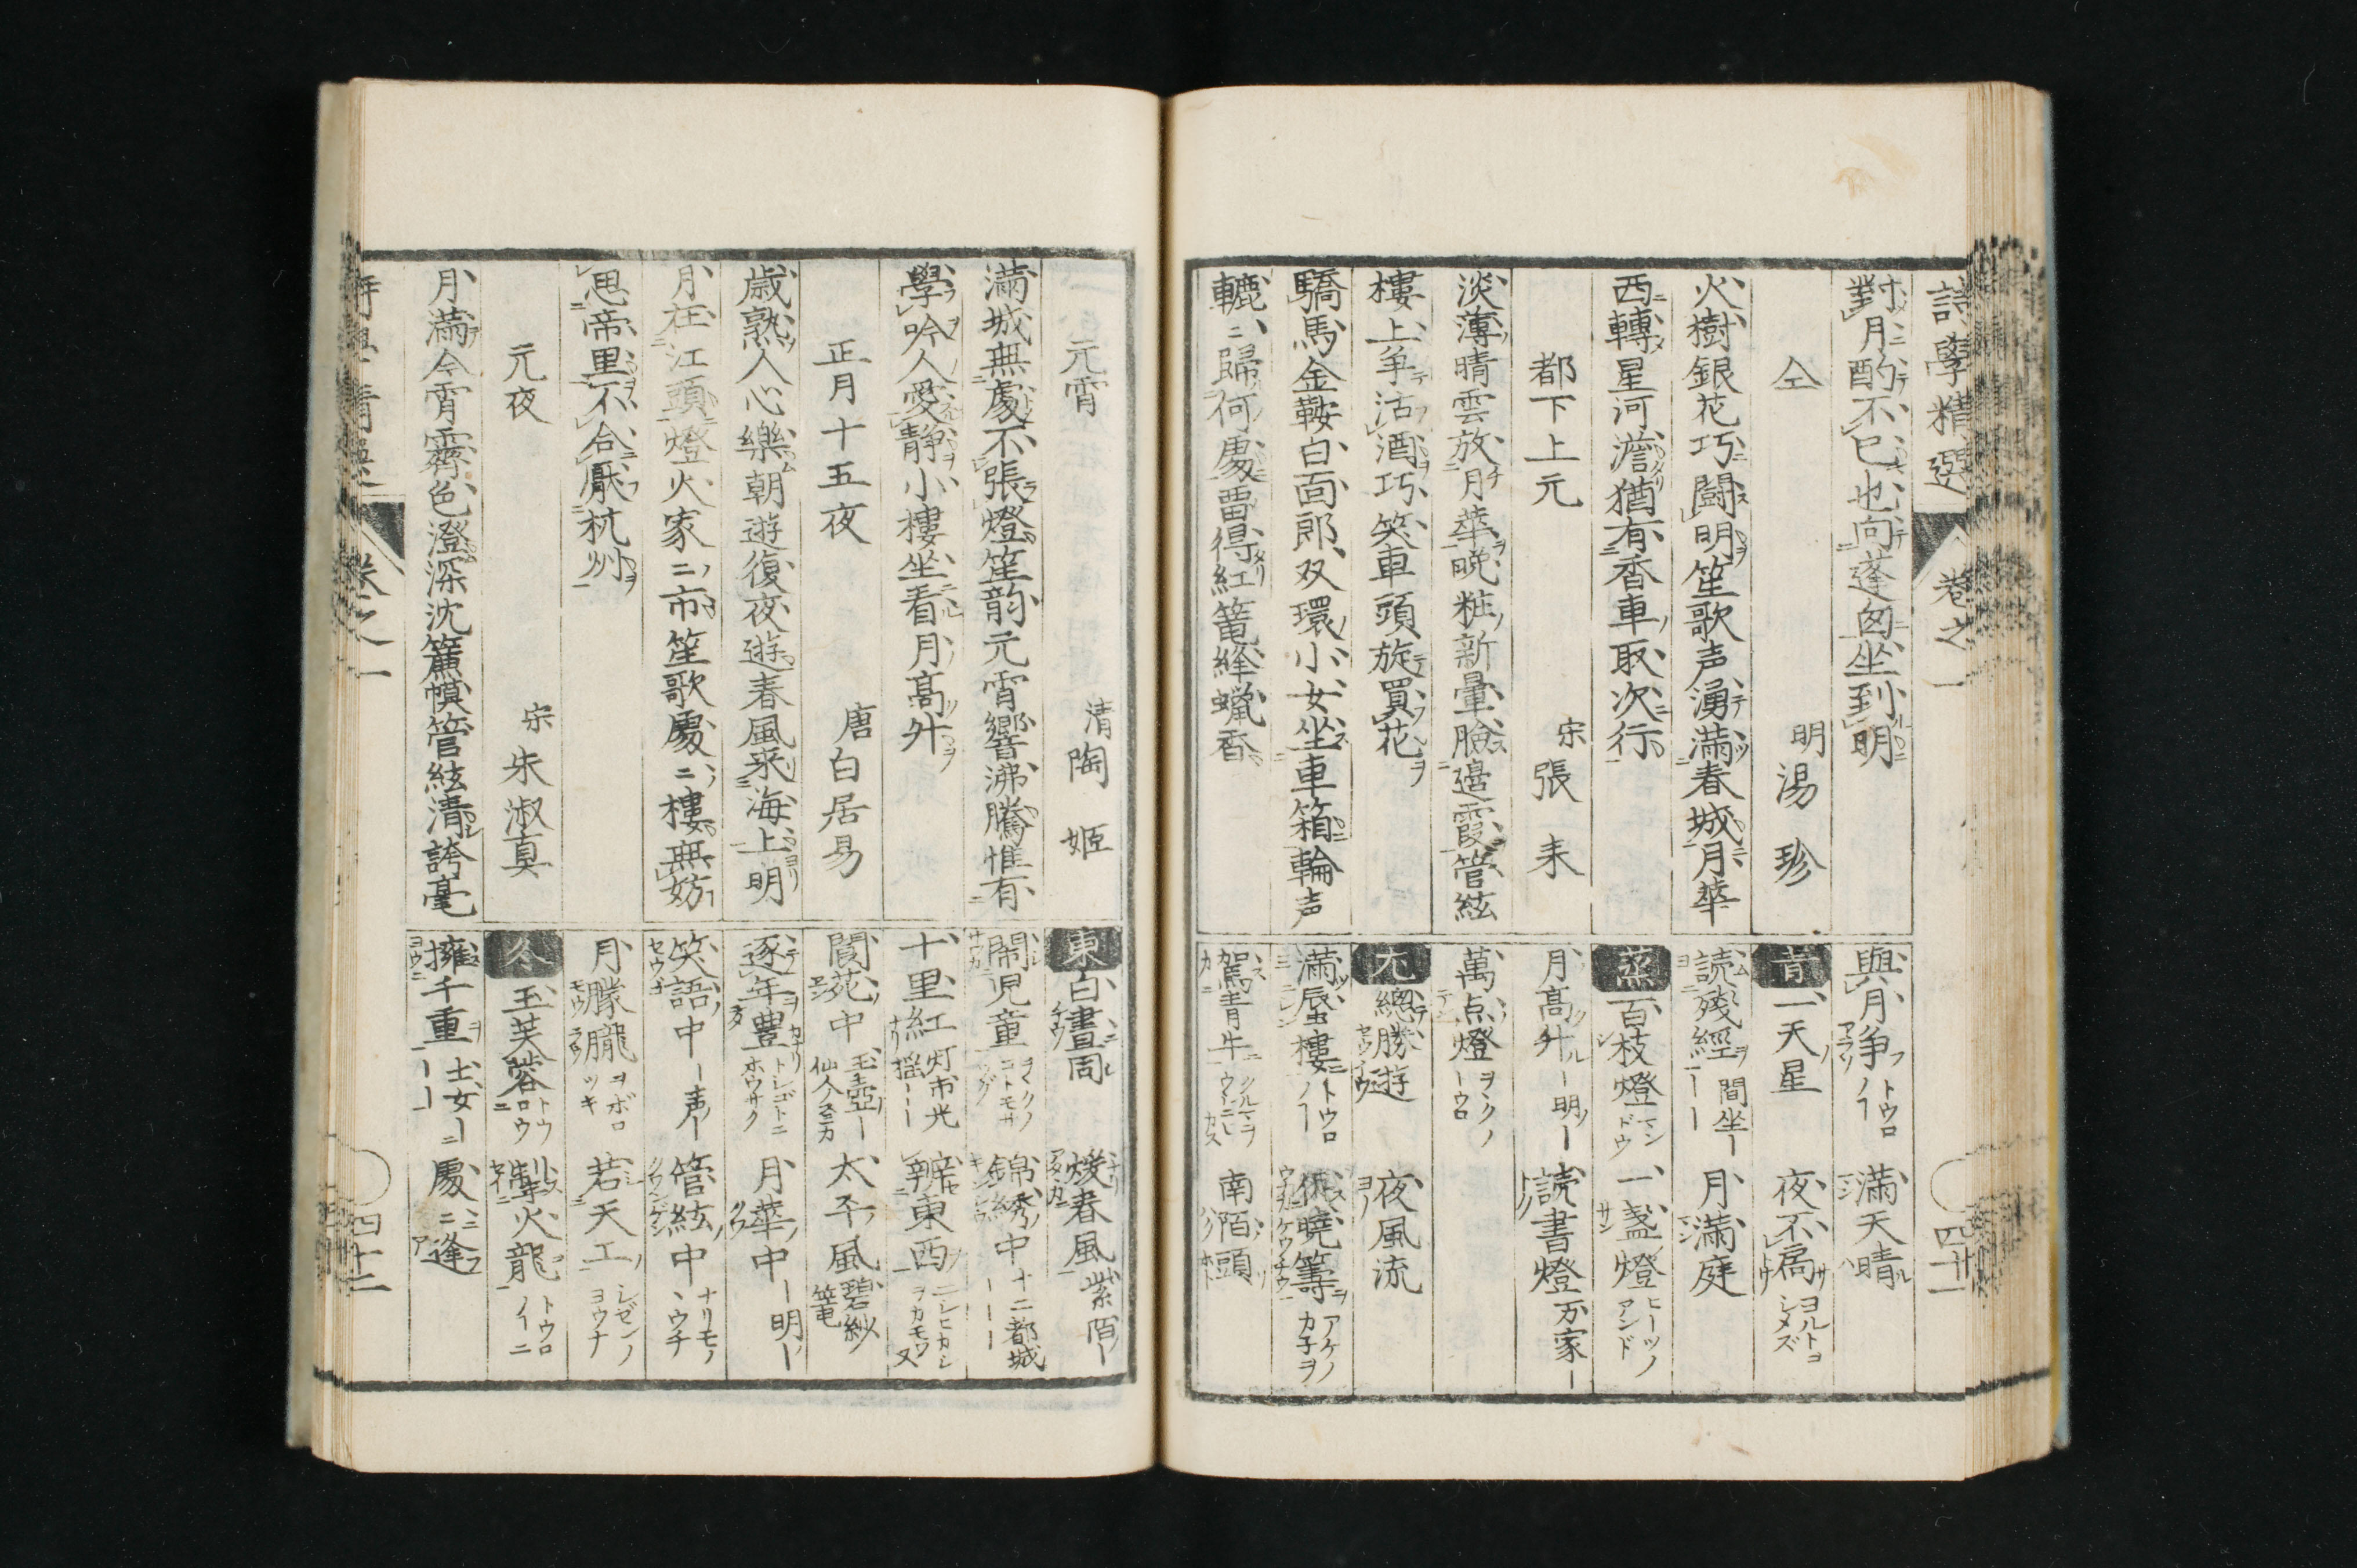 詩學精選 卷之一 四十一
對月酌不已也向蓬窗坐到明
仝 明 湯珍
火樹銀花巧鬪明笙歌声湧滿春城月華
西轉星河澹猶有香車取次行
都下上元 宋 張耒
淡薄晴雲放月華晩粧新暈臉邉霞管絃
樓上争沽酒巧笑車頭旋買花
驕馬金鞍白面郎双環小女坐車箱輪声
轆二歸何處畱得紅篭絳蠟香
與月争 滿天晴
青 一天星 夜不扃
読殘經 間坐 月滿庭
蒸 百枝燈 一盞燈
月高升 明 読書燈 万家
萬点燈
尤 總勝遊 夜風流
滿蜃樓 曉籌
駕青牛 南陌頭
元宵 清 陶姬
滿城無處不張燈笙韵元宵響沸騰惟有
學吟人愛靜小樓坐看月高升
正月十五夜 唐 白居易
歳熟人心樂朝遊復夜遊春風来海上明
月在江頭燈火家二市笙歌處二樓無妨
思帝里不合厭杭州
元夜 宋 朱淑真
月滿今宵霽色澄深沈簾幙管絃清誇毫
東 白晝同 煖春風 紫陌
閙児童 錦綉中 十二都城
十里紅 灯市光揺 辨東西
閬苑中 玉壺 仙人 太平風 碧紗篭
逐年豊 月華中 明
笑語中 声 管絃中
月朦朧 若天工
冬 玉芙蓉 掣火龍
擁千重 士女 處二逢
卷之一 四十二